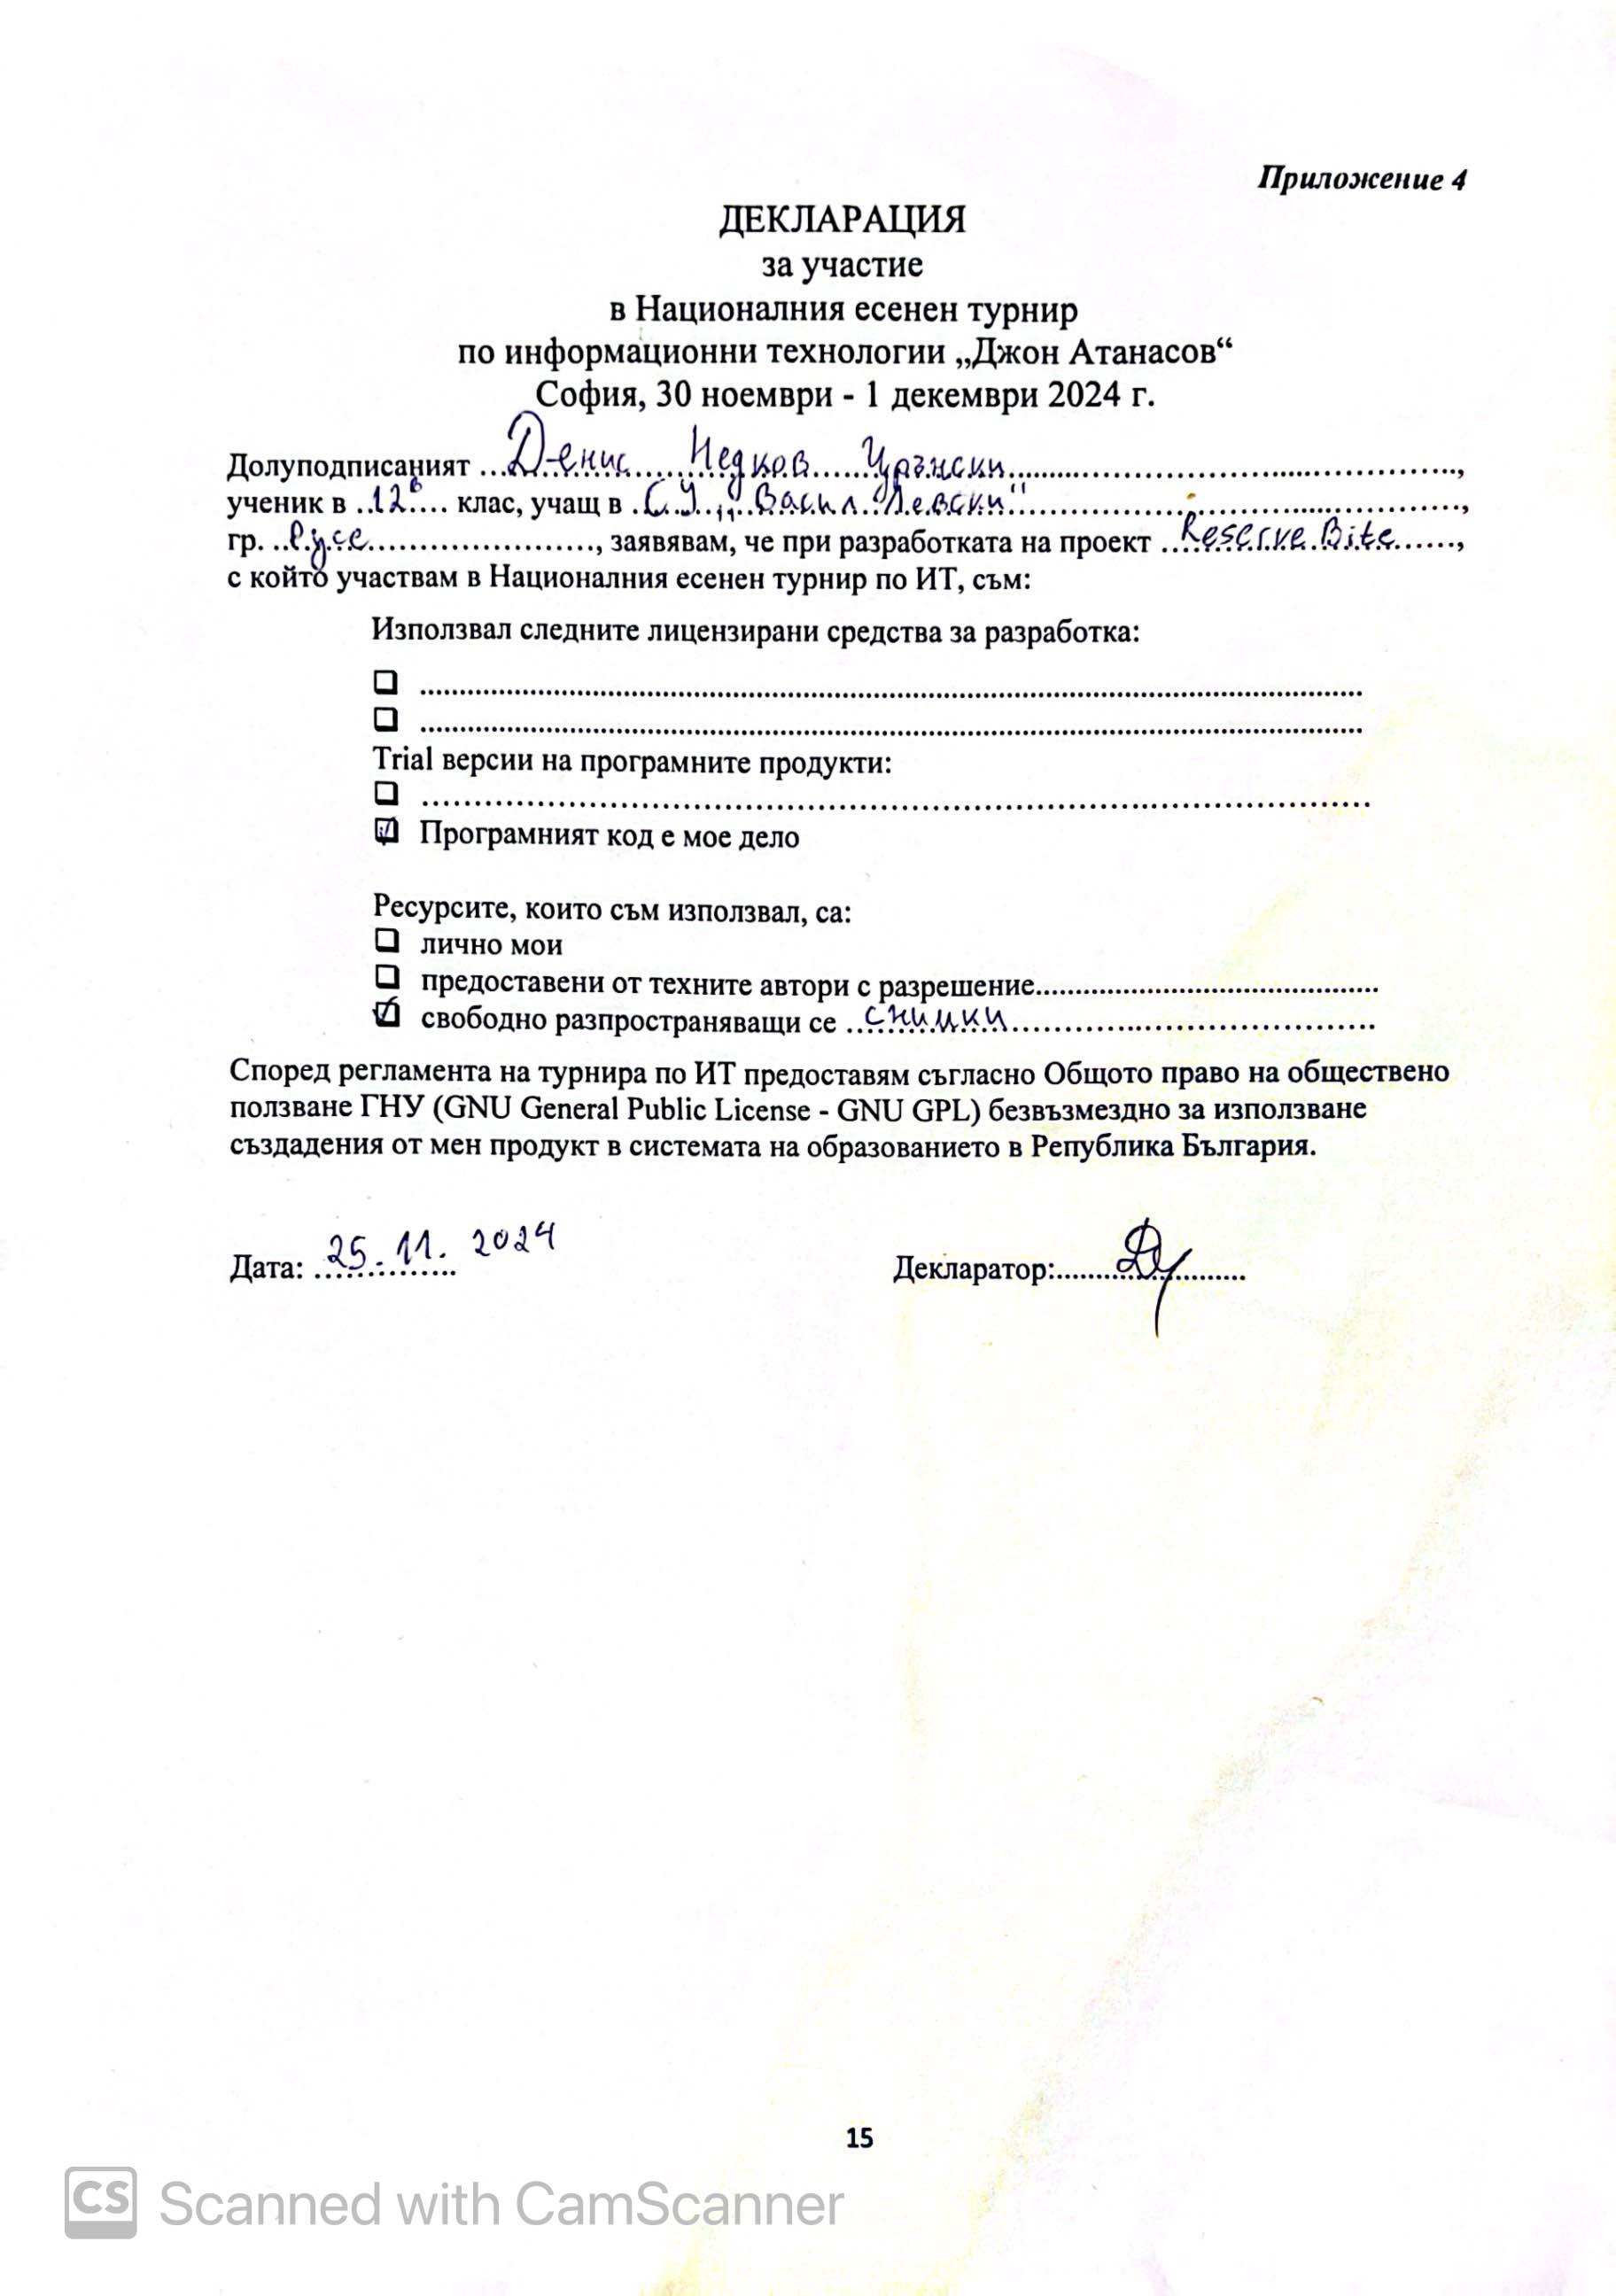 Приложение 4
ДЕКЛАРАЦИЯ
за участие
в Националния есенен турнир
по информационни технологии „Джон Атанасов“
София, 30 ноември - 1 декември 2024 г.
Долуподписаният ...Денис Недков.............................................,
ученик в ..12в.... клас, учащ в .СУ „Васил Левски".............................................,
гр. ..Русе........................, заявявам, че при разработката на проект ....Reserve Bite.......,
с който участвам в Националния есенен турнир по ИТ, съм:
Използвал следните лицензирани средства за разработка:
☐ ..........................................................................................
☐ ..........................................................................................
Trial версии на програмните продукти:
☐ ..........................................................................................
☑ Програмният код е мое дело
Ресурсите, които съм използвал, са:
☐ лично мои
☐ предоставени от техните автори с разрешение...........................................
☑ свободно разпространяващи се ..снимки..........................................
Според регламента на турнира по ИТ предоставям съгласно Общото право на обществено
ползване ГНУ (GNU General Public License - GNU GPL) безвъзмездно за използване
създадения от мен продукт в системата на образованието в Република България.
Дата: 25.11. 2024 Декларатор:........................
15
CS Scanned with CamScanner